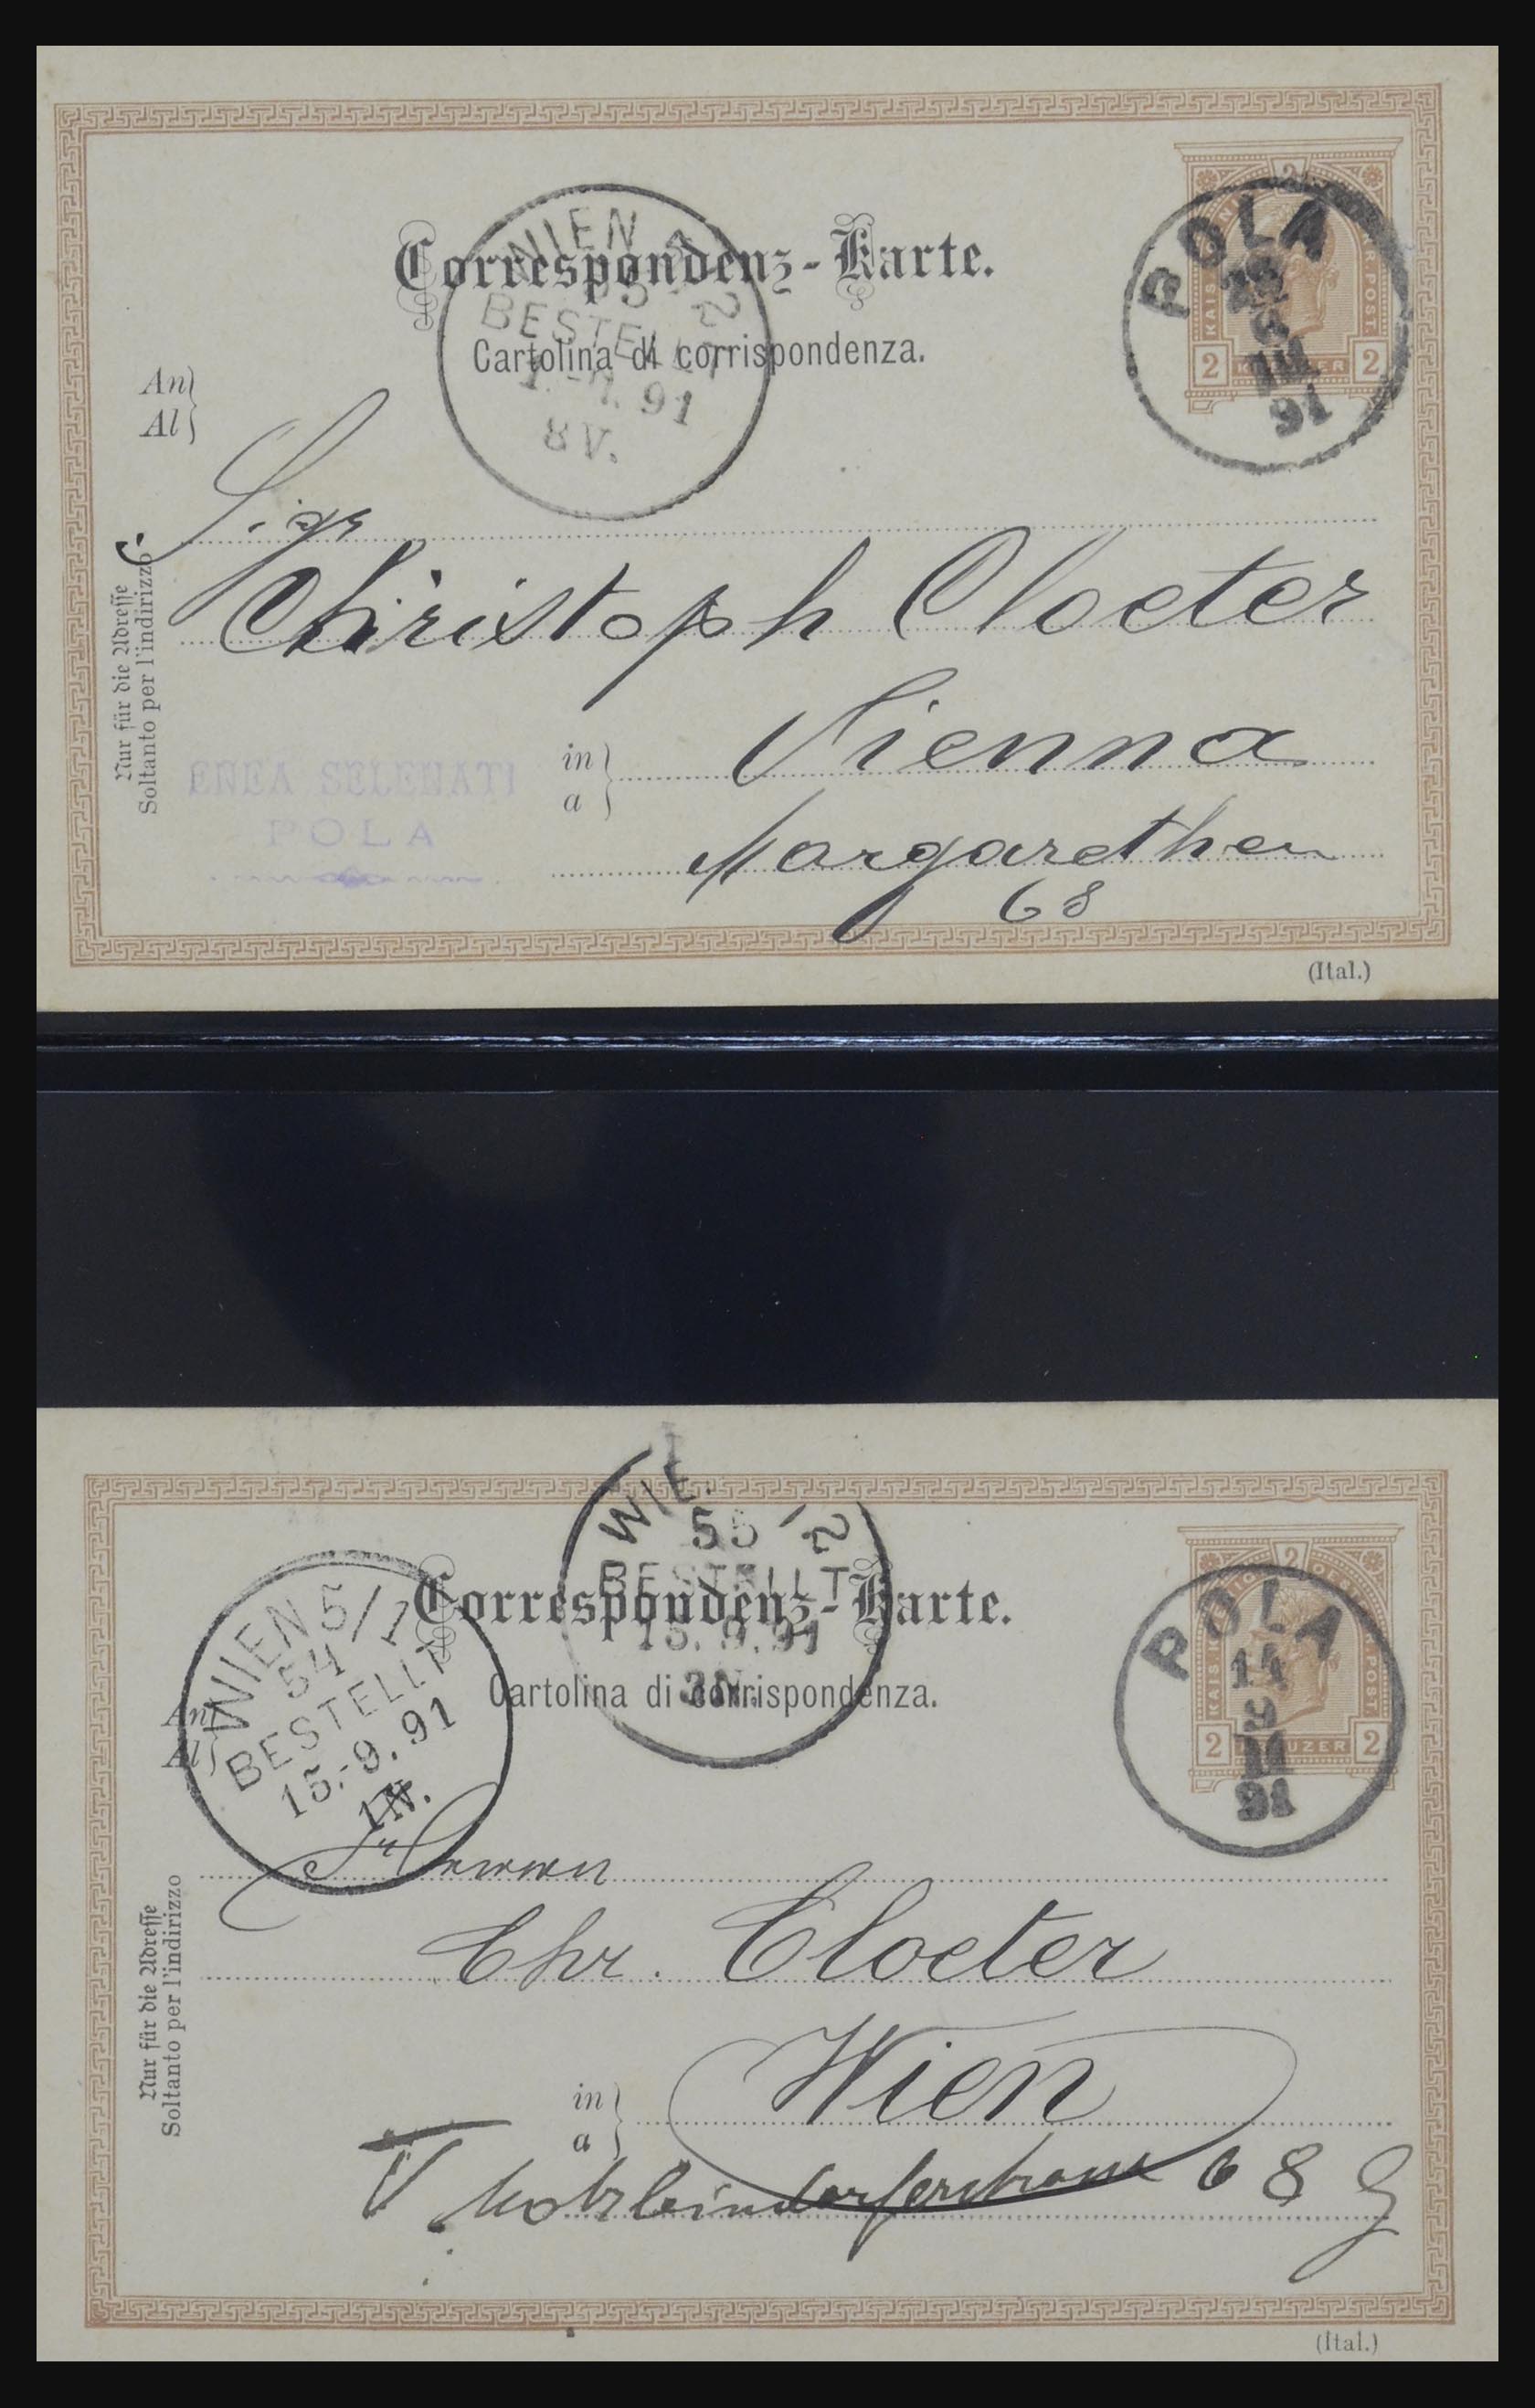 Correspondenz-Karte.
Cartolina di corrispondenza.
WIEN
BESTELLT
91
8 V.
2
KAIS.
R. POST.
2 2
POLA
91
An
Al
Sigr
Christoph Cloeter
in
a
Vienna
Margarethen
68
Nur für die Adresse
Soltanto per l'indirizzo
ENEA SELENATI
POLA
(Ital.)
WIE
55
2
BESTELLT
15.9.91
3N.
Correspondenz-Karte.
Cartolina di corrispondenza.
WIEN 5/1
54
BESTELLT
15.-9.91
1N.
2
KAIS.
POST.
2 KREUZER 2
POLA
14
9
91
An
Al
Herrn
Chr. Cloeter
in
a
Wien
V Matzleinsdorferstrasse 68
Nur für die Adresse
Soltanto per l'indirizzo
(Ital.)